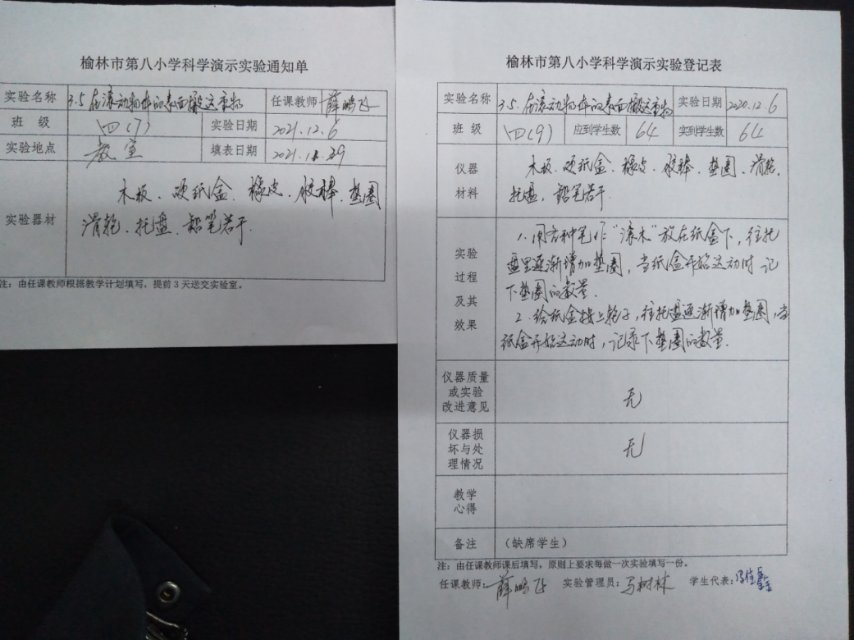 榆林市第八小学科学演示实验通知单
实验名称 3.5在滚动物体的表面搬运重物 任课教师 薛鹏飞
班 级 四(7) 实验日期 2021.12.6
实验地点 教室 填表日期 2021.11.29
实验器材 木板、硬纸盒、橡皮、胶棒、垫圈
滑轮、托盘、铅笔若干.
注:由任课教师根据教学计划填写,提前 3 天送交实验室。
榆林市第八小学科学演示实验登记表
实验名称 3.5.在滚动物体的表面搬运重物 实验日期 2020.12.6
班 级 四(9) 应到学生数 64 实到学生数 64
仪器
材料
木板、硬纸盒、橡皮、胶棒、垫圈、滑轮,
托盘、铅笔若干
实验
过程
及其
效果
1.用各种笔作“滚木”放在纸盒下,往托
盘里逐渐增加垫圈,当纸盒开始运动时 记
下垫圈的数量.
2.给纸盒接上轮子,往托盘逐渐增加垫圈,当
纸盒开始运动时,记录下垫圈的数量.
仪器质量
或实验
改进意见
无
仪器损
坏与处
理情况
无
教学
心得
备注 (缺席学生)
注:由任课教师课后填写,原则上要求每做一次实验填写一份。
任课教师:薛鹏飞 实验管理员:马树林 学生代表: